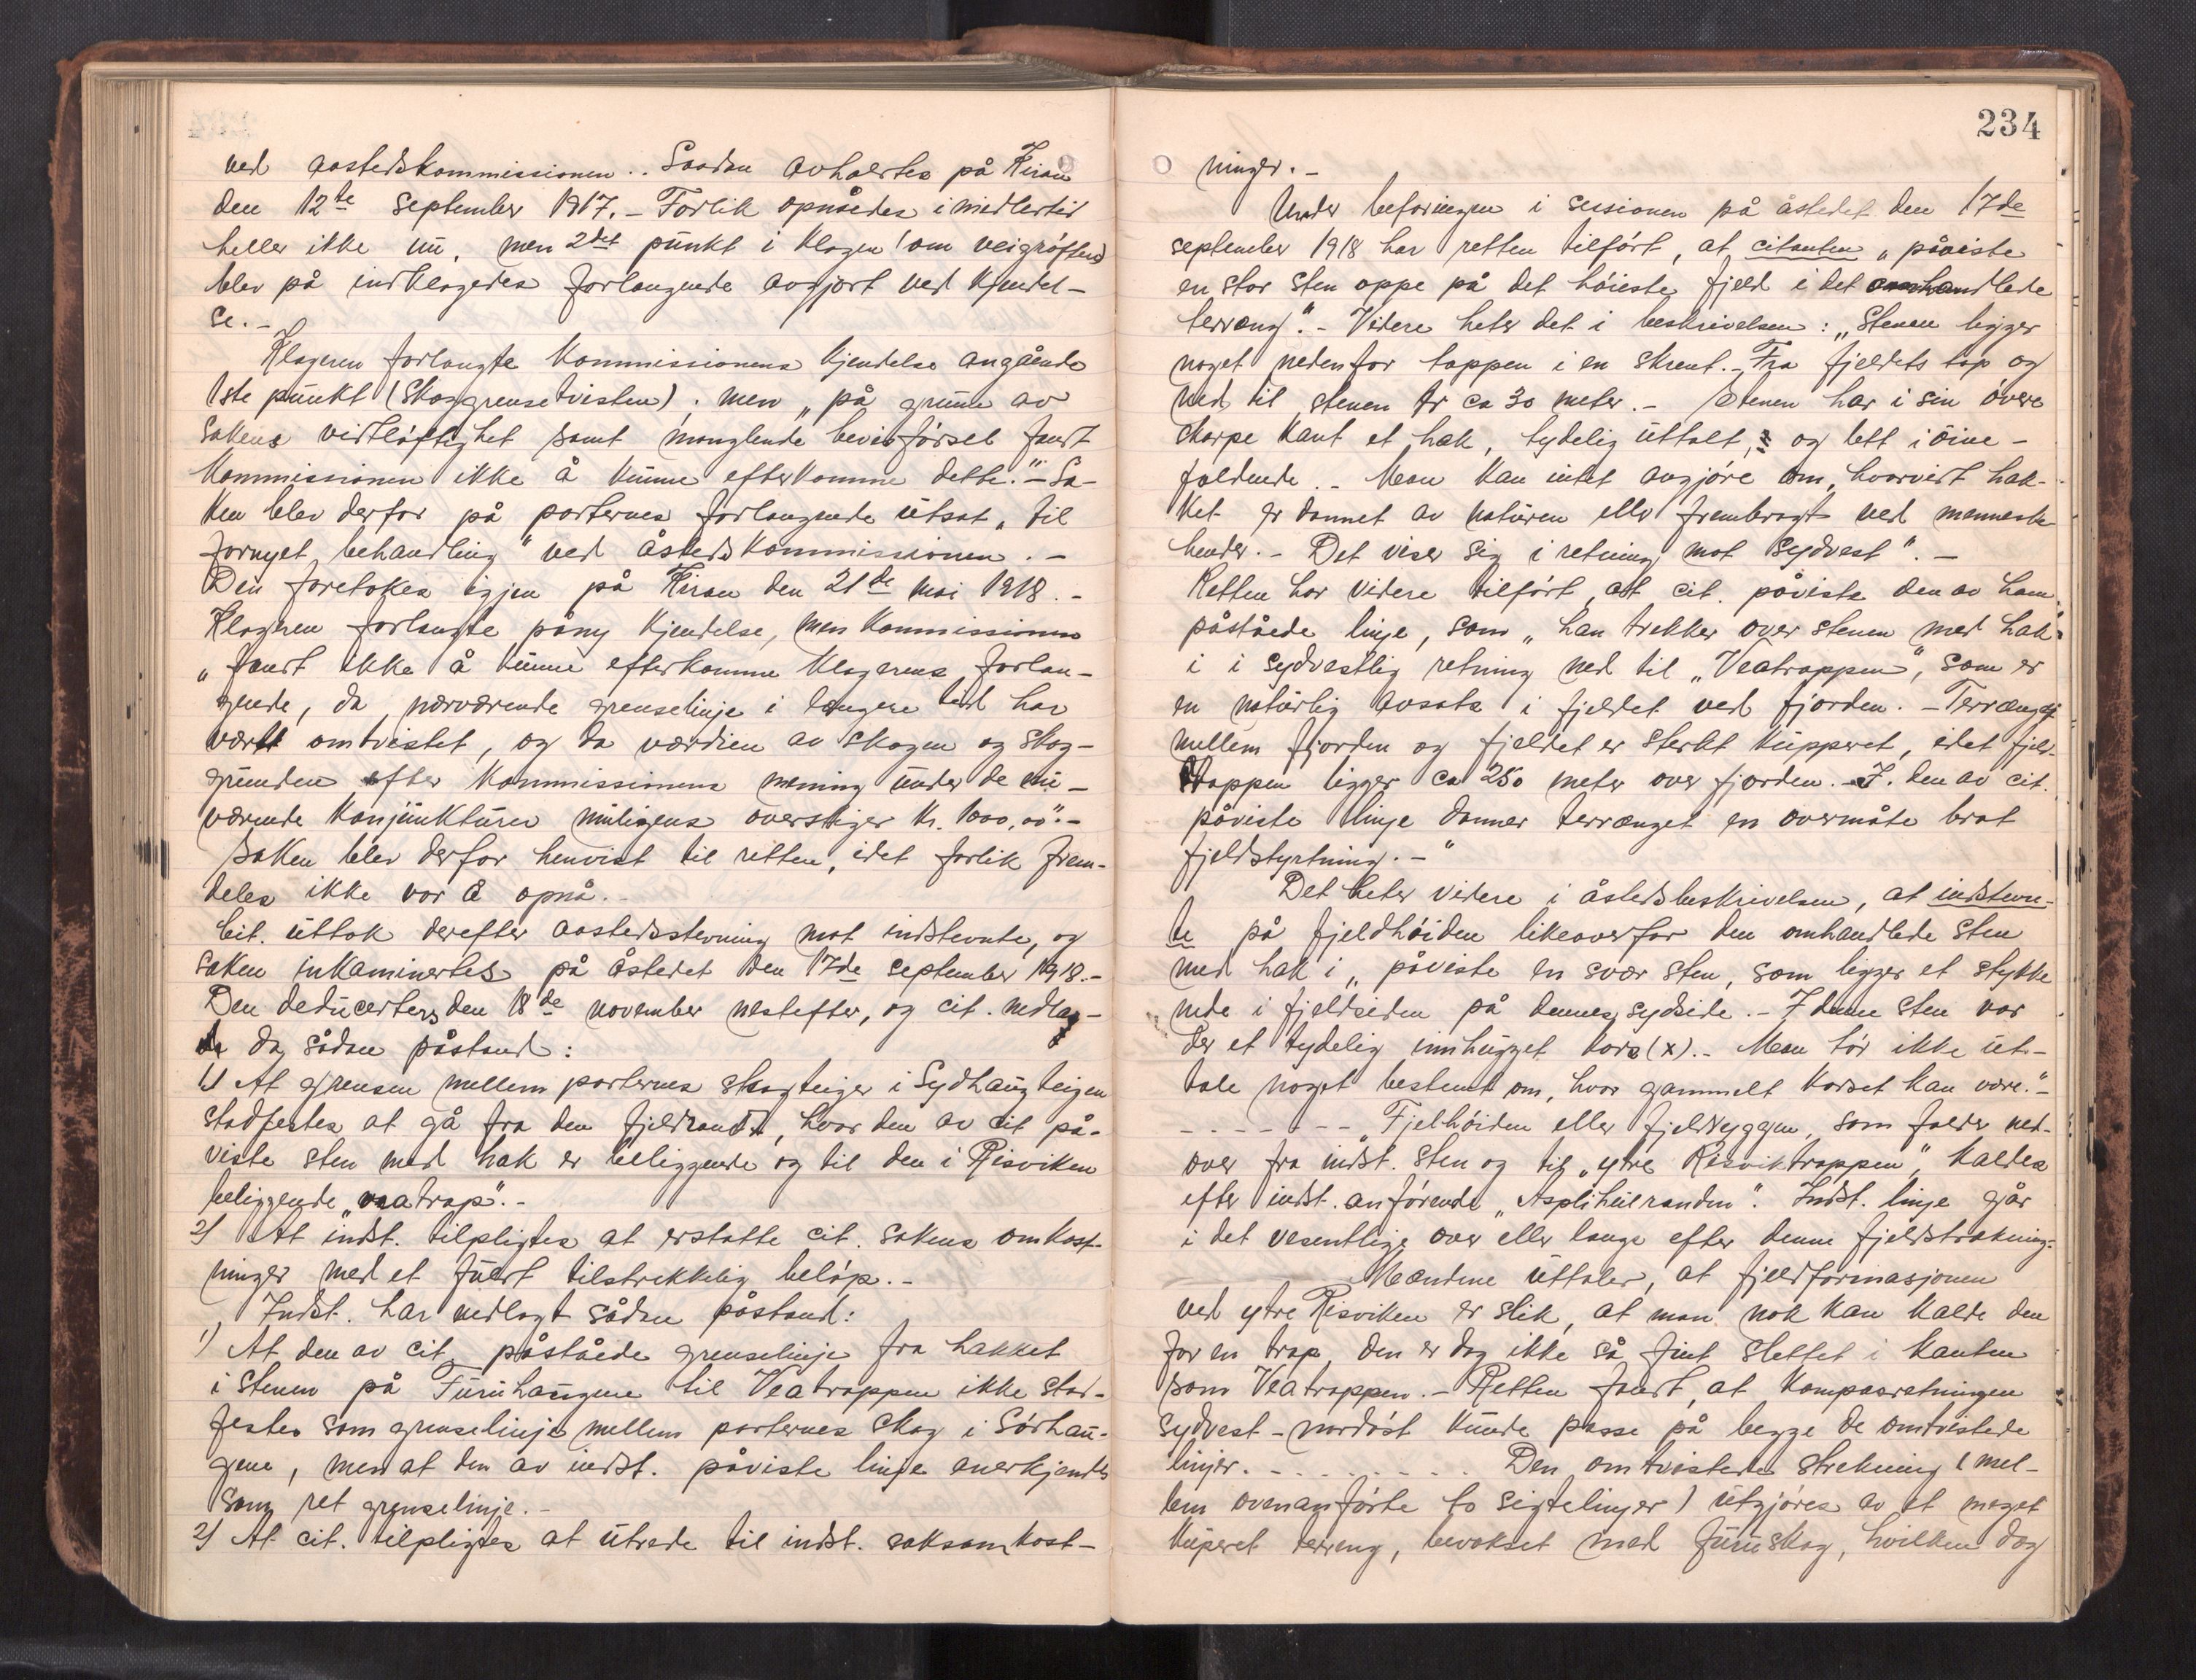 ved aastedskommissionen.. Saadan avholdtes på Kiran
den 12te september 1917. - Forlik opnåedes imidlertid
heller ikke nu, men 2det punkt i klagen (om veigrøften)
blev på indklagedes forlangende avgjort ved kjendel-
se. -
Klageren forlangte kommissionens kjendelse angående
1ste punkt (skoggrensetvisten); men "på grunn av
sakens vidtløftighet samt manglende bevisførsel fandt
kommissionen ikke å kunne efterkomme dette." - Sa-
ken blev derfor på parternes forlangende utsat "til
fornyet behandling" ved åstedskommissionen. -
Den foretokes igjen på Kiran den 21de mai 1918. -
Klageren forlangte påny kjendelse, men kommissionen
"fandt ikke å kunne efterkomme klagerens forlan-
gende, da nærværende grenselinje i længere tid har
vært omtvistet, og da værdien av skogen og skog-
grunden efter kommissionens mening under de nu-
værende konjunkturer muligens overstiger kr. 1000,00". -
Saken blev derfor henvist til retten, idet forlik frem-
deles ikke var å opnå. -
Cit. uttok derefter aastedsstevning mot indstevnte, og
saken inkaminertes på åstedet den 17de september 1918. -
Den deducertes den 18de november nestefter, og cit. nedlag-
de da sådan påstand:
1) At grensen mellem parternes skogteiger i Sydhaugteigen
stadfestes at gå fra den fjeldrand, hvor den av cit på-
viste sten med hak er beliggende og til den i Risviken
beliggende "veatrap". -
2) At indst. tilpligtes at erstatte cit. sakens omkost-
ninger med et fuldt tilstrekkelig beløp. -
Indst. har nedlagt sådan påstand:
1) At den av cit. påståede grenselinje fra hakket
i stenen på Furuhaugene til Veatrappen ikke stad-
festes som grenselinje mellem parternes skog i Sørhau-
gene, men at den av indst. påviste linje anerkjendes
som ret grenselinje. -
2) At cit. tilpligtes at utrede til indst. saksomkost-
234
ninger. -
Under befaringen i sessionen på åstedet den 17de
september 1918 har retten tilført, at citanten "påviste
en stor sten oppe på det høieste fjeld i det omhandlede
terræng". - Videre heter det i beskrivelsen: "Stenen ligger
noget nedenfor toppen i en skrent. - Fra fjeldets top og
ned til stenen er ca 30 meter. - Stenen har i sin øvere
skarpe kant et hak, tydelig uttalt, og lett iøine-
faldende. - Man kan intet avgjøre om, hvorvidt hak-
ket er dannet av naturen eller frembragt ved menneske
hender. - Det viser sig i retning mot sydvest". -
Retten har videre tilført, at cit. påviste den av ham
påståede linje, som "han trekker over stenen med hak
i i sydvestlig retning ned til "Veatrappen", som er
en naturlig avsats i fjeldet ved fjorden. - Terrænget
mellem fjorden og fjeldet er sterkt kupperet, idet fjeld-
toppen ligger ca 250 meter over fjorden. - I den av cit.
påviste linje danner terrænget en overmåte brat
fjeldstyrtning. -"
Det heter videre i åstedsbeskrivelsen, at indstevn-
te på fjeldhøiden likeoverfor den omhandlede sten
med hak i "påviste en svær sten, som ligger et stykke
nede i fjeldsiden på dennes sydside. - I denne sten var
der et tydelig innhugget kors (x). - Man tør ikke ut-
tale noget bestemt om, hvor gammelt korset kan være." -
- - - - - - - "Fjelhøiden eller fjeldryggen, som falder ned-
over fra indst. sten og til "ytre Risviktrappen", kaldes
efter indst. anførende "Aspliheilranden". Indst. linje går
i det vesentlige over eller langs efter denne fjeldstrækning.
Mændene uttaler, at fjeldformasjonen
ved ytre Risviken er slik, at man nok kan kalde den
for en trap, den er dog ikke så fint slettet i kanten
som Veatrappen. - Retten fandt, at kompasretningen
sydvest - nordøst kunde passe på begge de omtvistede
linjer. - - - - - - - - Den omtvistede strekning (mel-
lem ovenanførte to sigtelinjer) utgjøres av et meget
kuperet terreng, bevokset med furuskog, hvilken dog